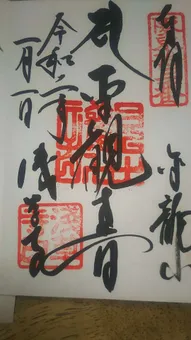 奉拝
金龍山
聖観世音
令和二年
一月一日
浅草寺